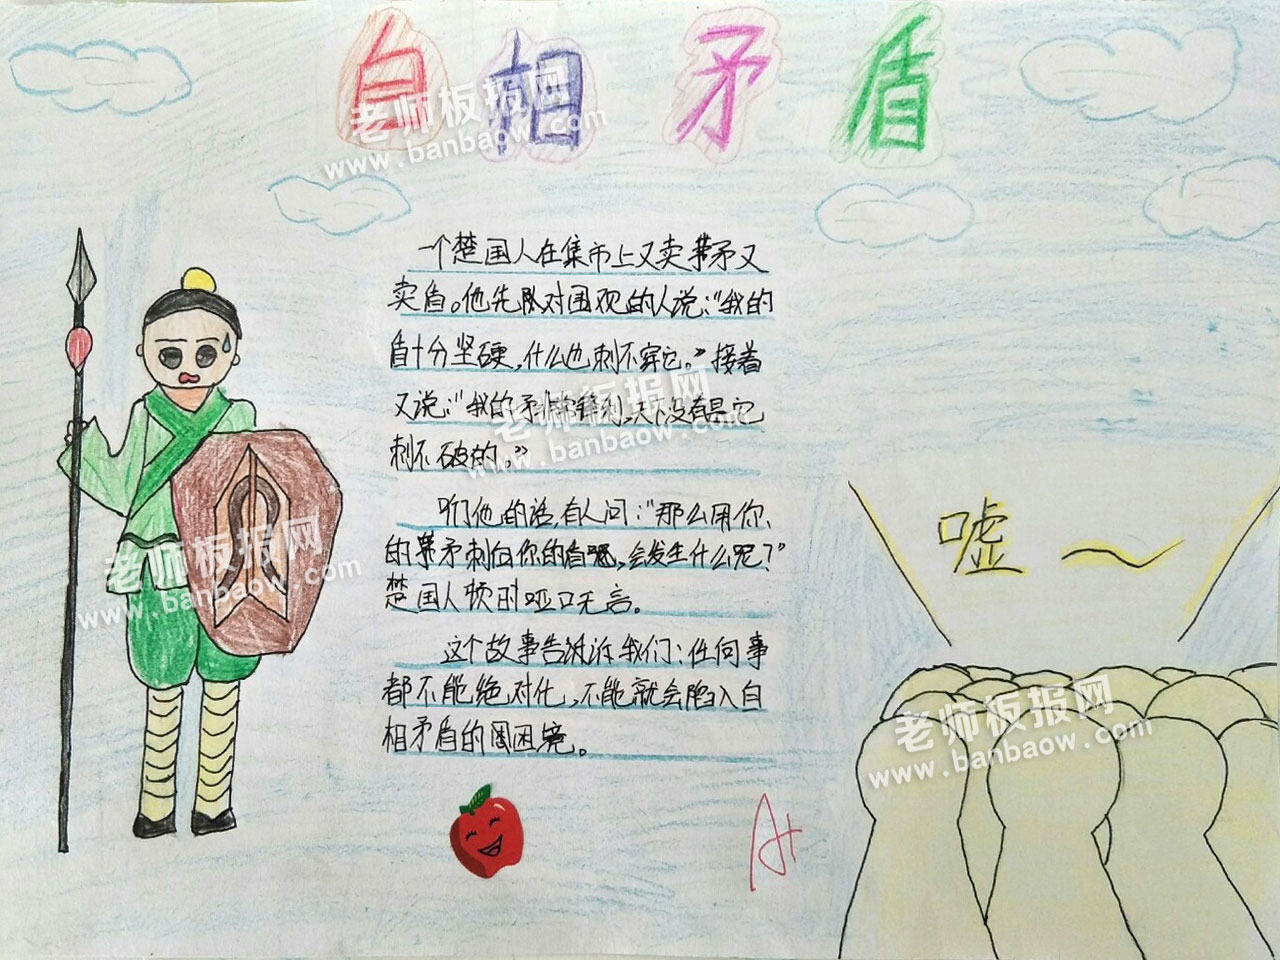 自相矛盾
老师板报网
www.banbaow.com
一个楚国人在集市上又卖矛又
卖盾。他先对围观的人说:“我的
盾十分坚硬,什么也刺不穿它。”接着
又说:“我的矛非常锋利,天下没有是它
刺不破的。”
老师板报网
www.banbaow.com
嘘~
听他的话,有人问:“那么用你、
的矛刺向你的盾呢,会发生什么呢?”
楚国人顿时哑口无言。
老师板报网
www.banbaow.com
这个故事告诉我们:任何事
都不能绝对化,不能就会陷入自
相矛盾的困境。
老师板报网
www.banbaow.com
A+